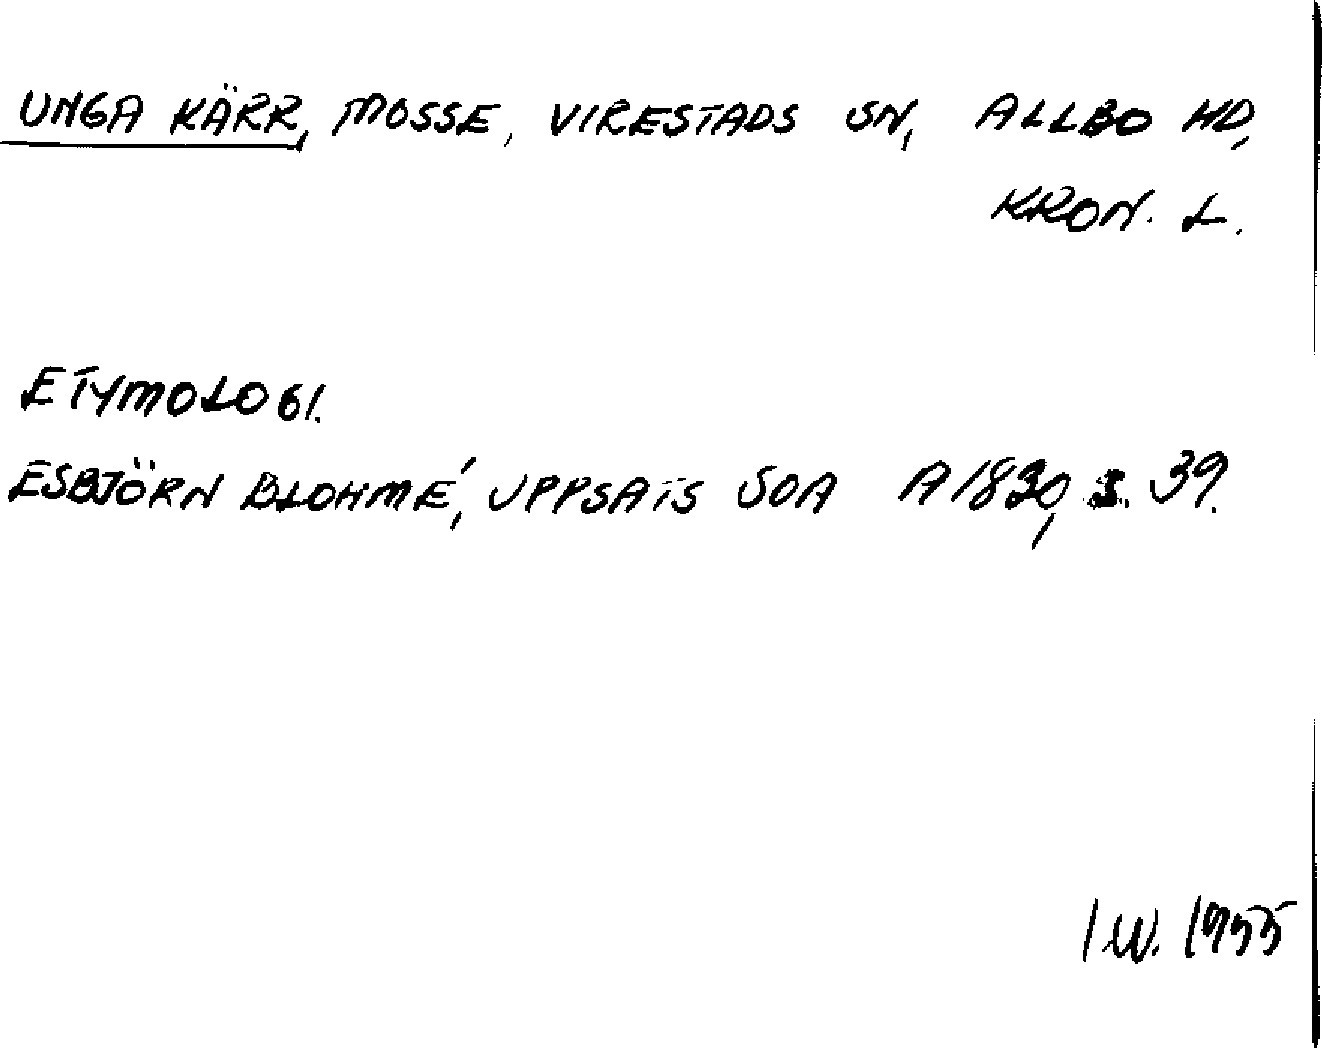 UNGA KÄRR, MOSSE, VIRESTADS SN, ALLBO HD,
KRON. L.
ETYMOLOGI.
ESBJÖRN BLOHMÉ, UPPSATS SOA A 1830, S. 39.
I.W. 1955